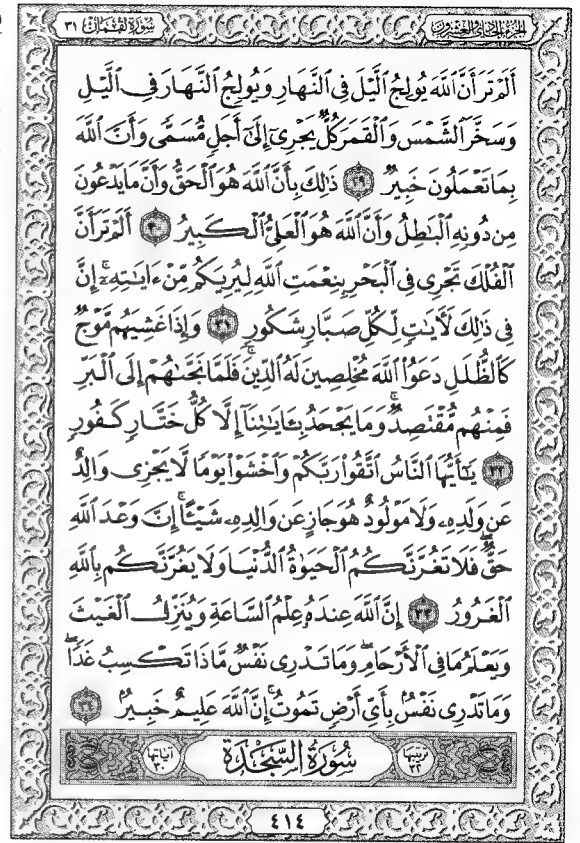 سُورَةُ لُقْمَان ٣١
الجزء الحادي والعشرون
أَلَمْ تَرَ أَنَّ ٱللَّهَ يُولِجُ ٱلَّيْلَ فِى ٱلنَّهَارِ وَيُولِجُ ٱلنَّهَارَ فِى ٱلَّيْلِ
وَسَخَّرَ ٱلشَّمْسَ وَٱلْقَمَرَ كُلٌّ يَجْرِىٓ إِلَىٰٓ أَجَلٍ مُّسَمًّى وَأَنَّ ٱللَّهَ
بِمَا تَعْمَلُونَ خَبِيرٌ ٢٩ ذَٰلِكَ بِأَنَّ ٱللَّهَ هُوَ ٱلْحَقُّ وَأَنَّ مَا يَدْعُونَ
مِن دُونِهِ ٱلْبَٰطِلُ وَأَنَّ ٱللَّهَ هُوَ ٱلْعَلِىُّ ٱلْكَبِيرُ ٣٠ أَلَمْ تَرَ أَنَّ
ٱلْفُلْكَ تَجْرِى فِى ٱلْبَحْرِ بِنِعْمَتِ ٱللَّهِ لِيُرِيَكُم مِّنْ ءَايَٰتِهِۦٓ ۚ إِنَّ
فِى ذَٰلِكَ لَءَايَٰتٍ لِّكُلِّ صَبَّارٍ شَكُورٍ ٣١ وَإِذَا غَشِيَهُم مَّوْجٌ
كَٱلظُّلَلِ دَعَوُا۟ ٱللَّهَ مُخْلِصِينَ لَهُ ٱلدِّينَ فَلَمَّا نَجَّىٰهُمْ إِلَى ٱلْبَرِّ
فَمِنْهُم مُّقْتَصِدٌ ۚ وَمَا يَجْحَدُ بِـَٔايَٰتِنَآ إِلَّا كُلُّ خَتَّارٍ كَفُورٍ
٣٢ يَٰٓأَيُّهَا ٱلنَّاسُ ٱتَّقُوا۟ رَبَّكُمْ وَٱخْشَوْا۟ يَوْمًا لَّا يَجْزِى وَالِدٌ
عَن وَلَدِهِۦ وَلَا مَوْلُودٌ هُوَ جَازٍ عَن وَالِدِهِۦ شَيْـًٔا ۚ إِنَّ وَعْدَ ٱللَّهِ
حَقٌّ ۖ فَلَا تَغُرَّنَّكُمُ ٱلْحَيَوٰةُ ٱلدُّنْيَا وَلَا يَغُرَّنَّكُم بِٱللَّهِ
ٱلْغَرُورُ ٣٣ إِنَّ ٱللَّهَ عِندَهُۥ عِلْمُ ٱلسَّاعَةِ وَيُنَزِّلُ ٱلْغَيْثَ
وَيَعْلَمُ مَا فِى ٱلْأَرْحَامِ ۖ وَمَا تَدْرِى نَفْسٌ مَّاذَا تَكْسِبُ غَدًا ۖ
وَمَا تَدْرِى نَفْسٌۢ بِأَىِّ أَرْضٍ تَمُوتُ ۚ إِنَّ ٱللَّهَ عَلِيمٌ خَبِيرٌۢ ٣٤
ترتيبها ٣٢ سُورَةُ السَّجْدَة آياتها ٣٠
٤١٤